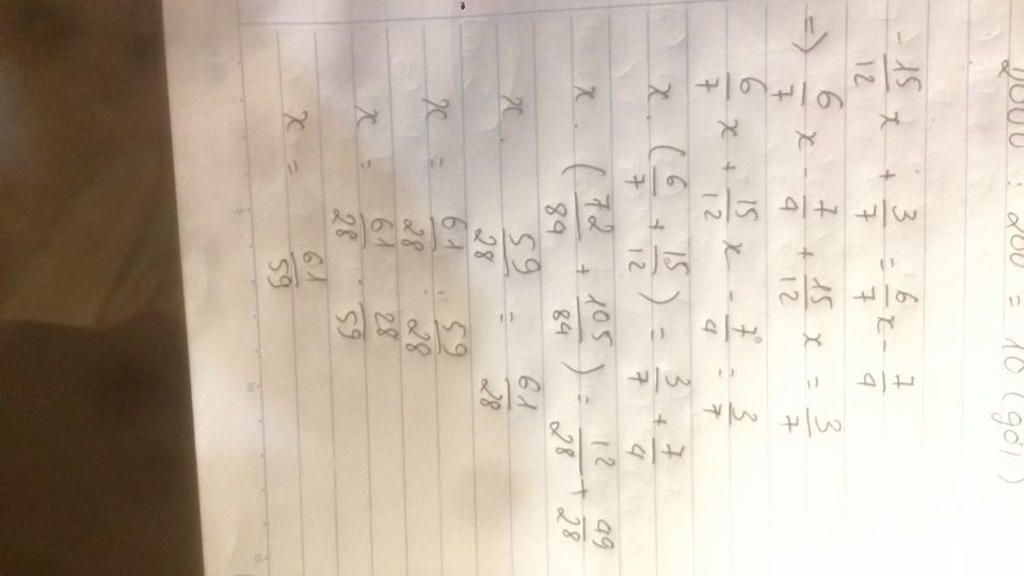 20000 : 200 = 10 (gói)
-15/12 x + 3/7 = 6/7 x - 7/4
=> 6/7 x - 7/4 + 15/12 x = 3/7
6/7 x + 15/12 x - 7/4 = 3/7
x . (6/7 + 15/12) = 3/7 + 7/4
x . (72/84 + 105/84) = 12/28 + 49/28
x . 59/28 = 61/28
x = 61/28 : 59/28
x = 61/28 . 28/59
x = 61/59